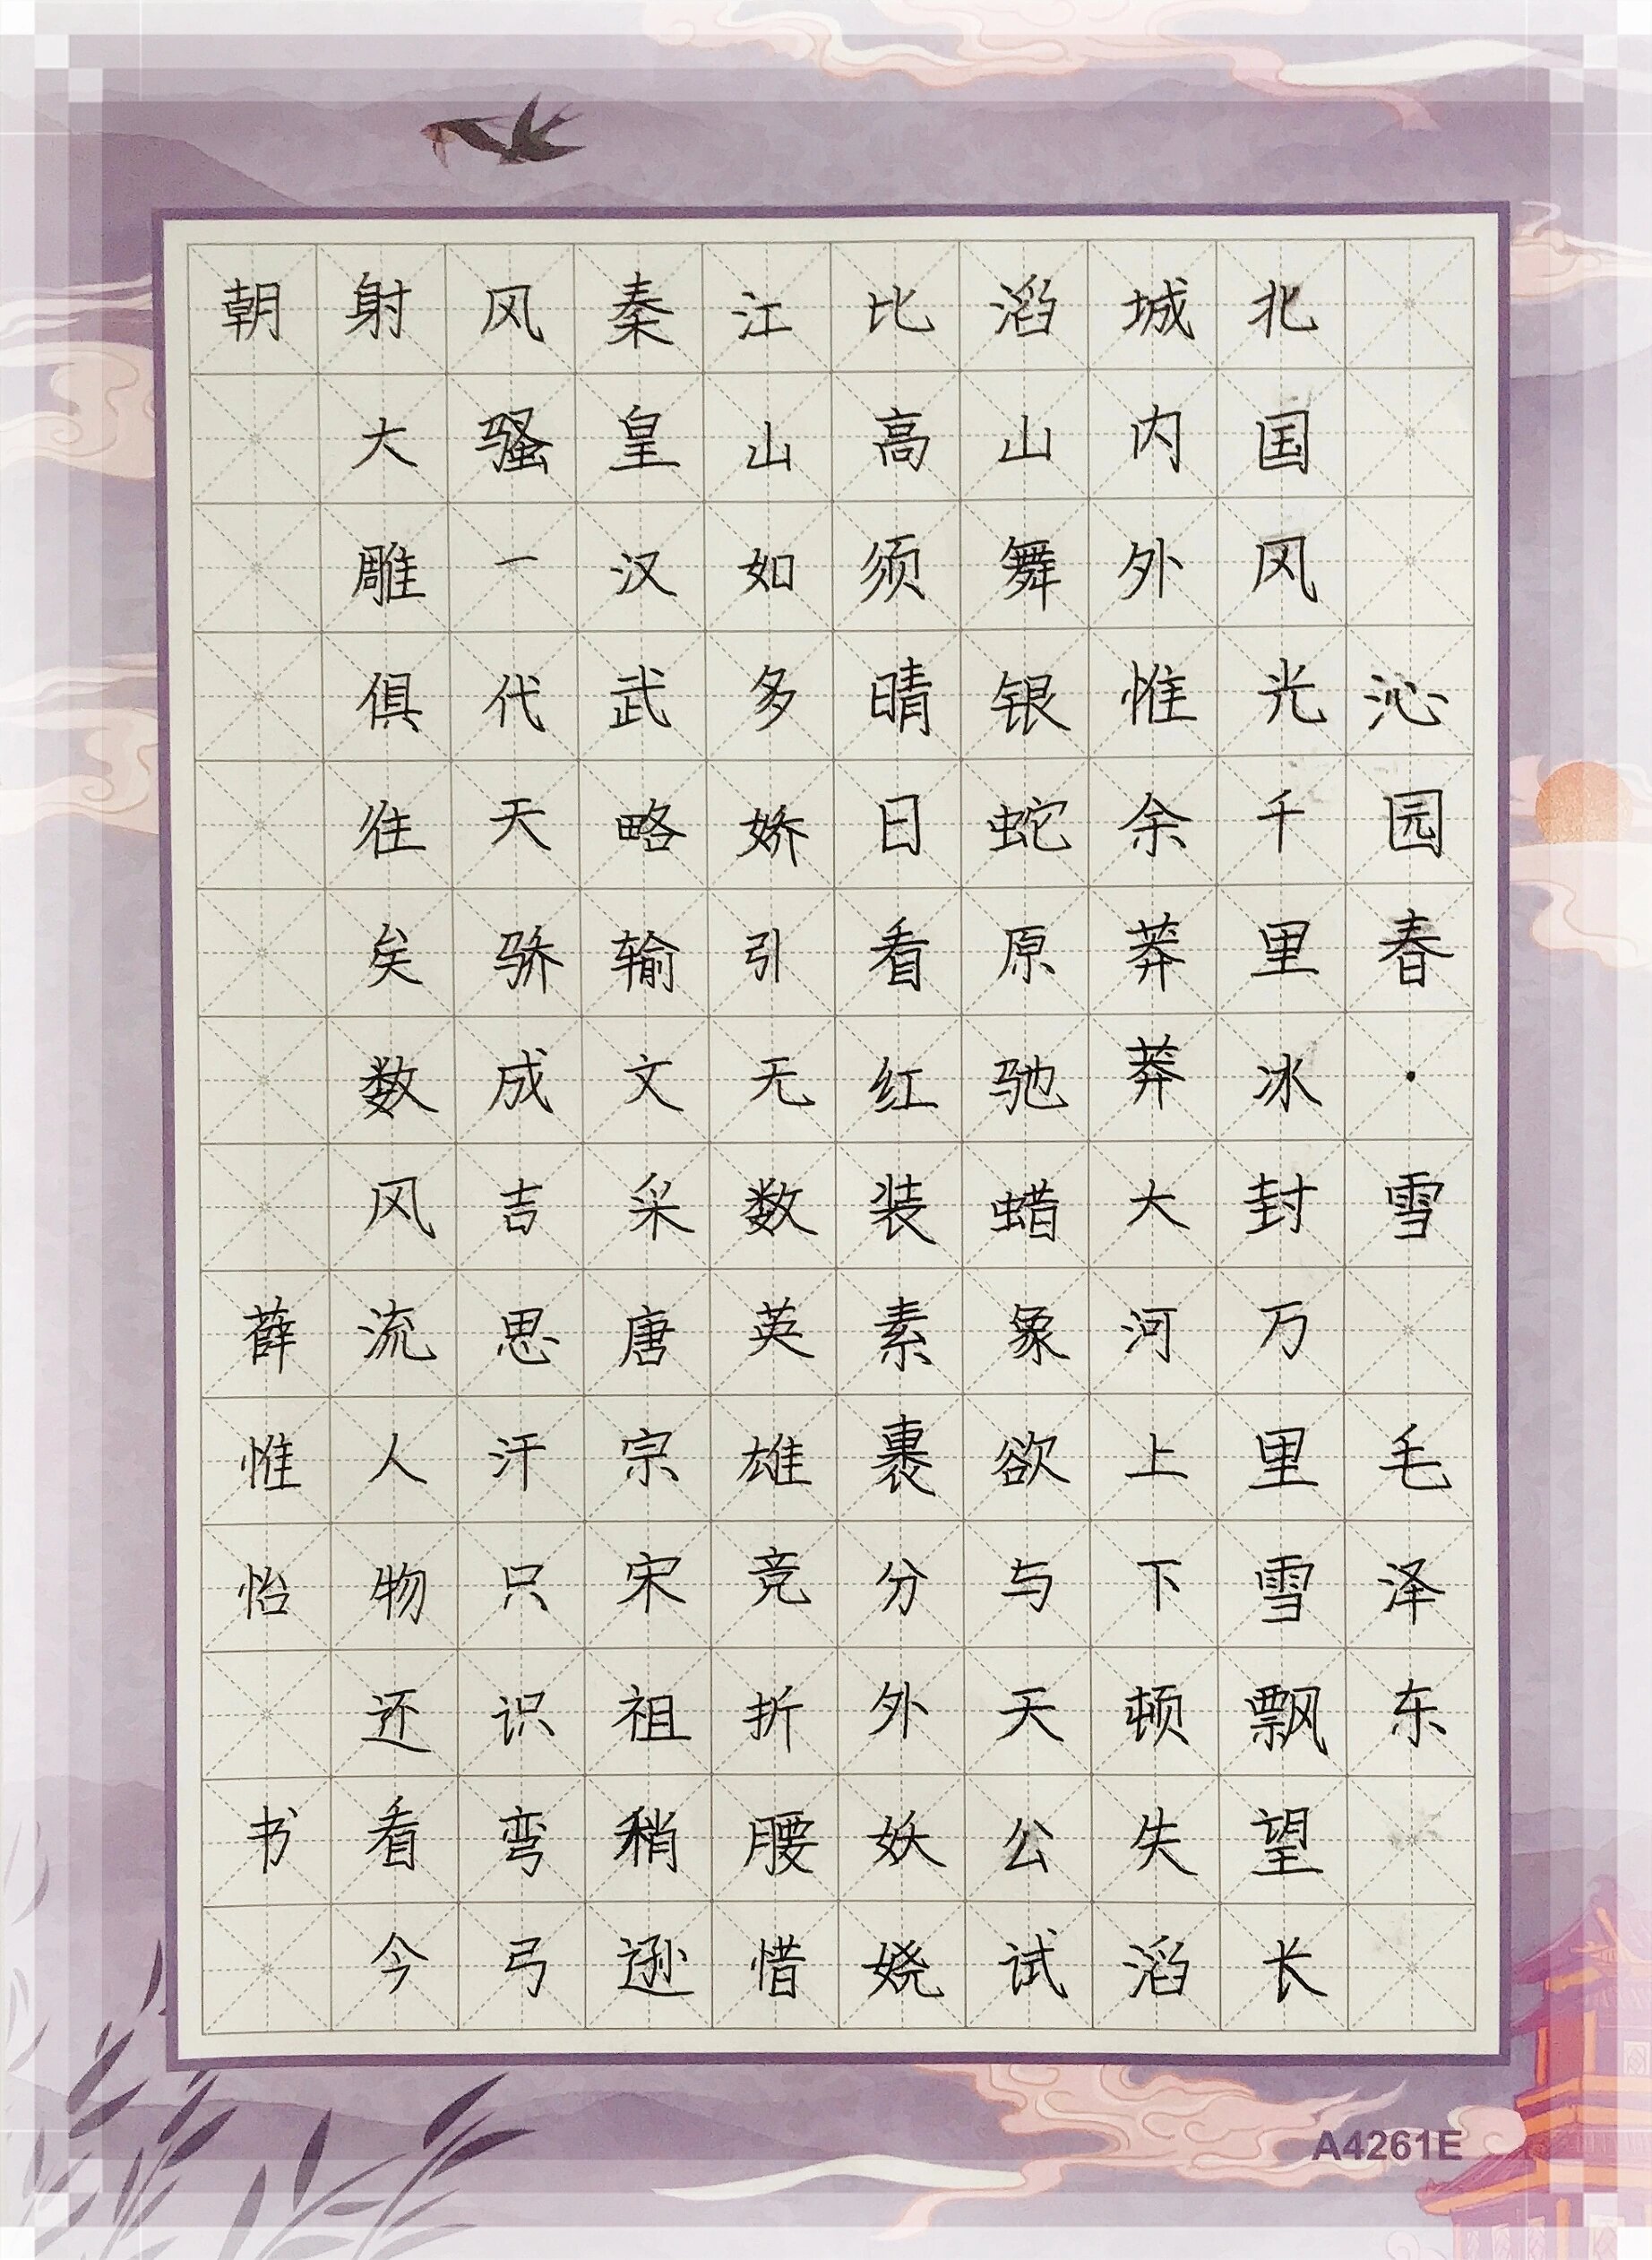 沁园春·雪 毛泽东
北国风光千里冰封万里雪飘望长
城内外惟余莽莽大河上下顿失滔
滔山舞银蛇原驰蜡象欲与天公试
比高须晴日看红装素裹分外妖娆
江山如多娇引无数英雄竞折腰惜
秦皇汉武略输文采唐宗宋祖稍逊
风骚一代天骄成吉思汗只识弯弓
射大雕俱往矣数风流人物还看今
朝 薛惟怡 书
A4261E